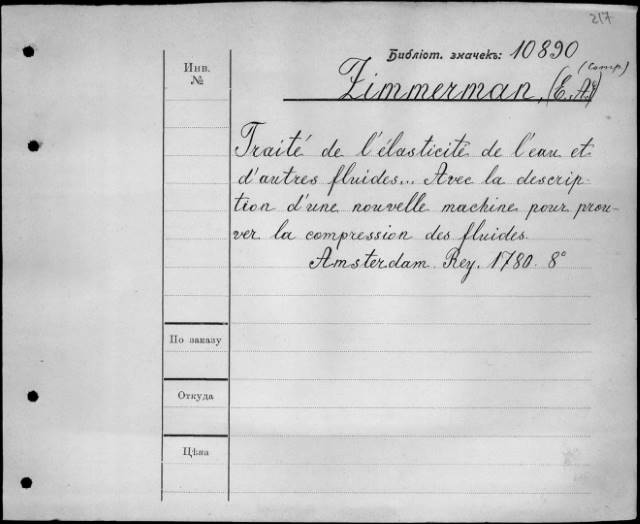 217
Библіот. значекъ: 10890
Инв. №
(Comp.)
Zimmerman, (E. A.)
Traité de l'élasticité de l'eau et
d'autres fluides... Avec la descrip-
tion d'une nouvelle machine pour prou-
ver la compression des fluides
Amsterdam. Rey. 1780. 8°
По заказу
Откуда
Цѣна